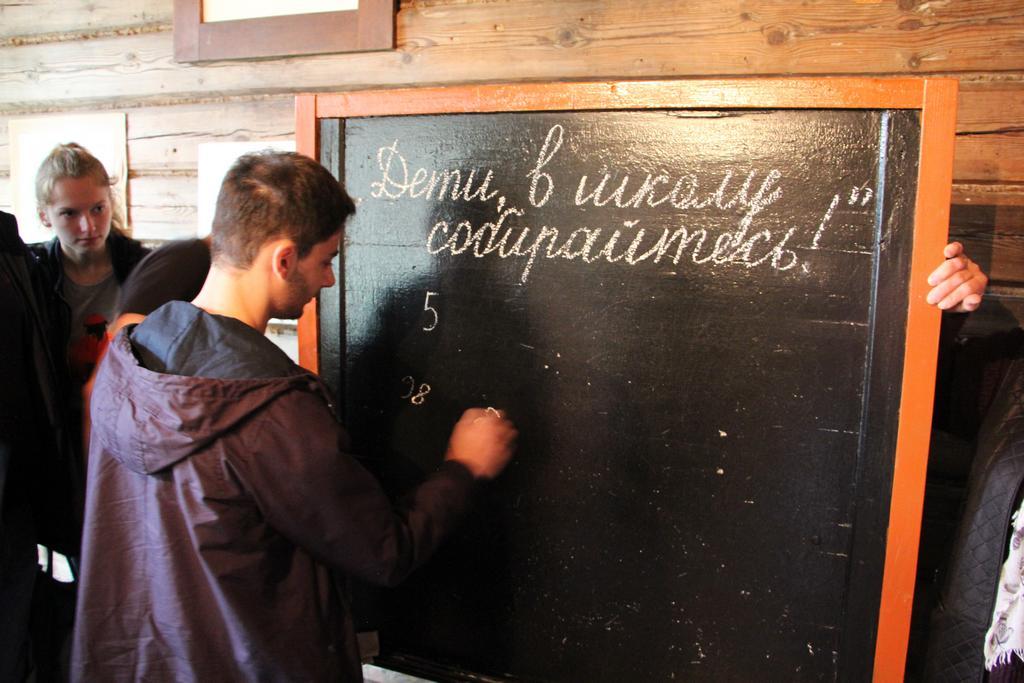 „Дети, в школу
собирайтесь!"
5
38